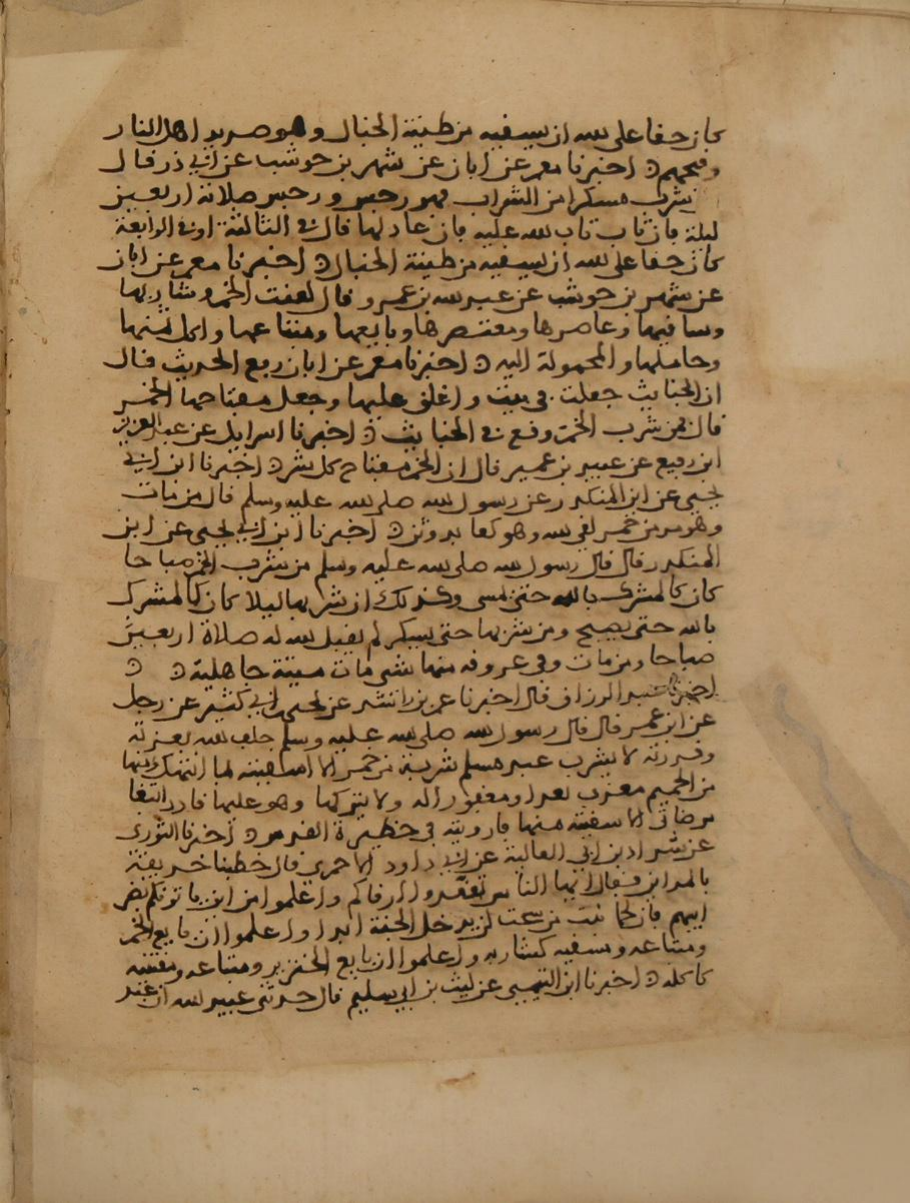 كان حقا على الله ان يسقيه من طينة الخبال وهو صديد اهل النار
وقيحهم اخبرنا معمر عن ابان عن شهر بن حوشب عن ابي ذر قال
من شرب مسكرا من الشراب فهو رجس ورجس صلاته اربعين
ليلة فان تاب تاب الله عليه فان عاد لها قال في الثالثة او في الرابعة
كان حقا على الله ان يسقيه من طينة الخبال اخبرنا معمر عن ابان
عن شهر بن حوشب عن عبد الله بن عمرو قال لعنت الخمر وشاربها
وساقيها وعاصرها ومعتصرها وبايعها ومبتاعها واكل ثمنها
وحاملها والمحمولة اليه اخبرنا معمر عن ابان رفع الحديث قال
ان الخبايث جعلت في بيت واغلق عليها وجعل مفتاحها الخمر
فان من شرب الخمر وقع في الخبايث اخبرنا اسرايل عن عبد العزيز
ابن رفيع عن عبيد بن عمير قال ان الخمر مفتاح كل شر اخبرنا ابن ابي
يحيى عن ابن المنكدر عن رسول الله صلى الله عليه وسلم قال من مات
وهو مدمن خمر لقي الله وهو كعابد وثن اخبرنا ابن ابي يحيى عن ابن
المنكدر قال قال رسول الله صلى الله عليه وسلم من شرب الخمر صباحا
كان كالمشرك بالله حتى يمسي وكذلك ان شربها ليلا كان كالمشرك
بالله حتى يصبح ومن شربها حتى يسكر لم يقبل الله له صلاة اربعين
صباحا ومن مات وفي عروقه منها شي مات ميتة جاهلية
اخبرنا عبد الرزاق قال اخبرنا عمر بن راشد عن يحيى بن ابي كثير عن رجل
عن ابن عمر قال قال رسول الله صلى الله عليه وسلم حلف الله بعزته
وقدرته لا يشرب عبد مسلم شربة من خمر الا اسقيته لما انتهك منها
من الحميم معذب بعد او مغفور له ولا يتركها وهو عليها قادر ابتغا
مرضاتي الا سقيته منها فارويته في حظيرة القدس اخبرنا الثوري
عن شداد بن ابي العالية عن ابي داود الاحمري قال خطبنا حذيفة
بالمداين فقال ايها الناس تفقدوا ارقاكم واعلموا من اين ياتونكم بضر
ايبهم فان لحما نبت من سحت لن يدخل الجنة ابدا واعلموا ان بايع الخمر
ومبتاعه ومسقيه كشاربه واعلموا ان بايع الخنزير ومبتاعه ومقتنيه
كاكله اخبرنا ابن التيمي عن ليث بن ابي سليم قال حدثني عبيد الله ان عند